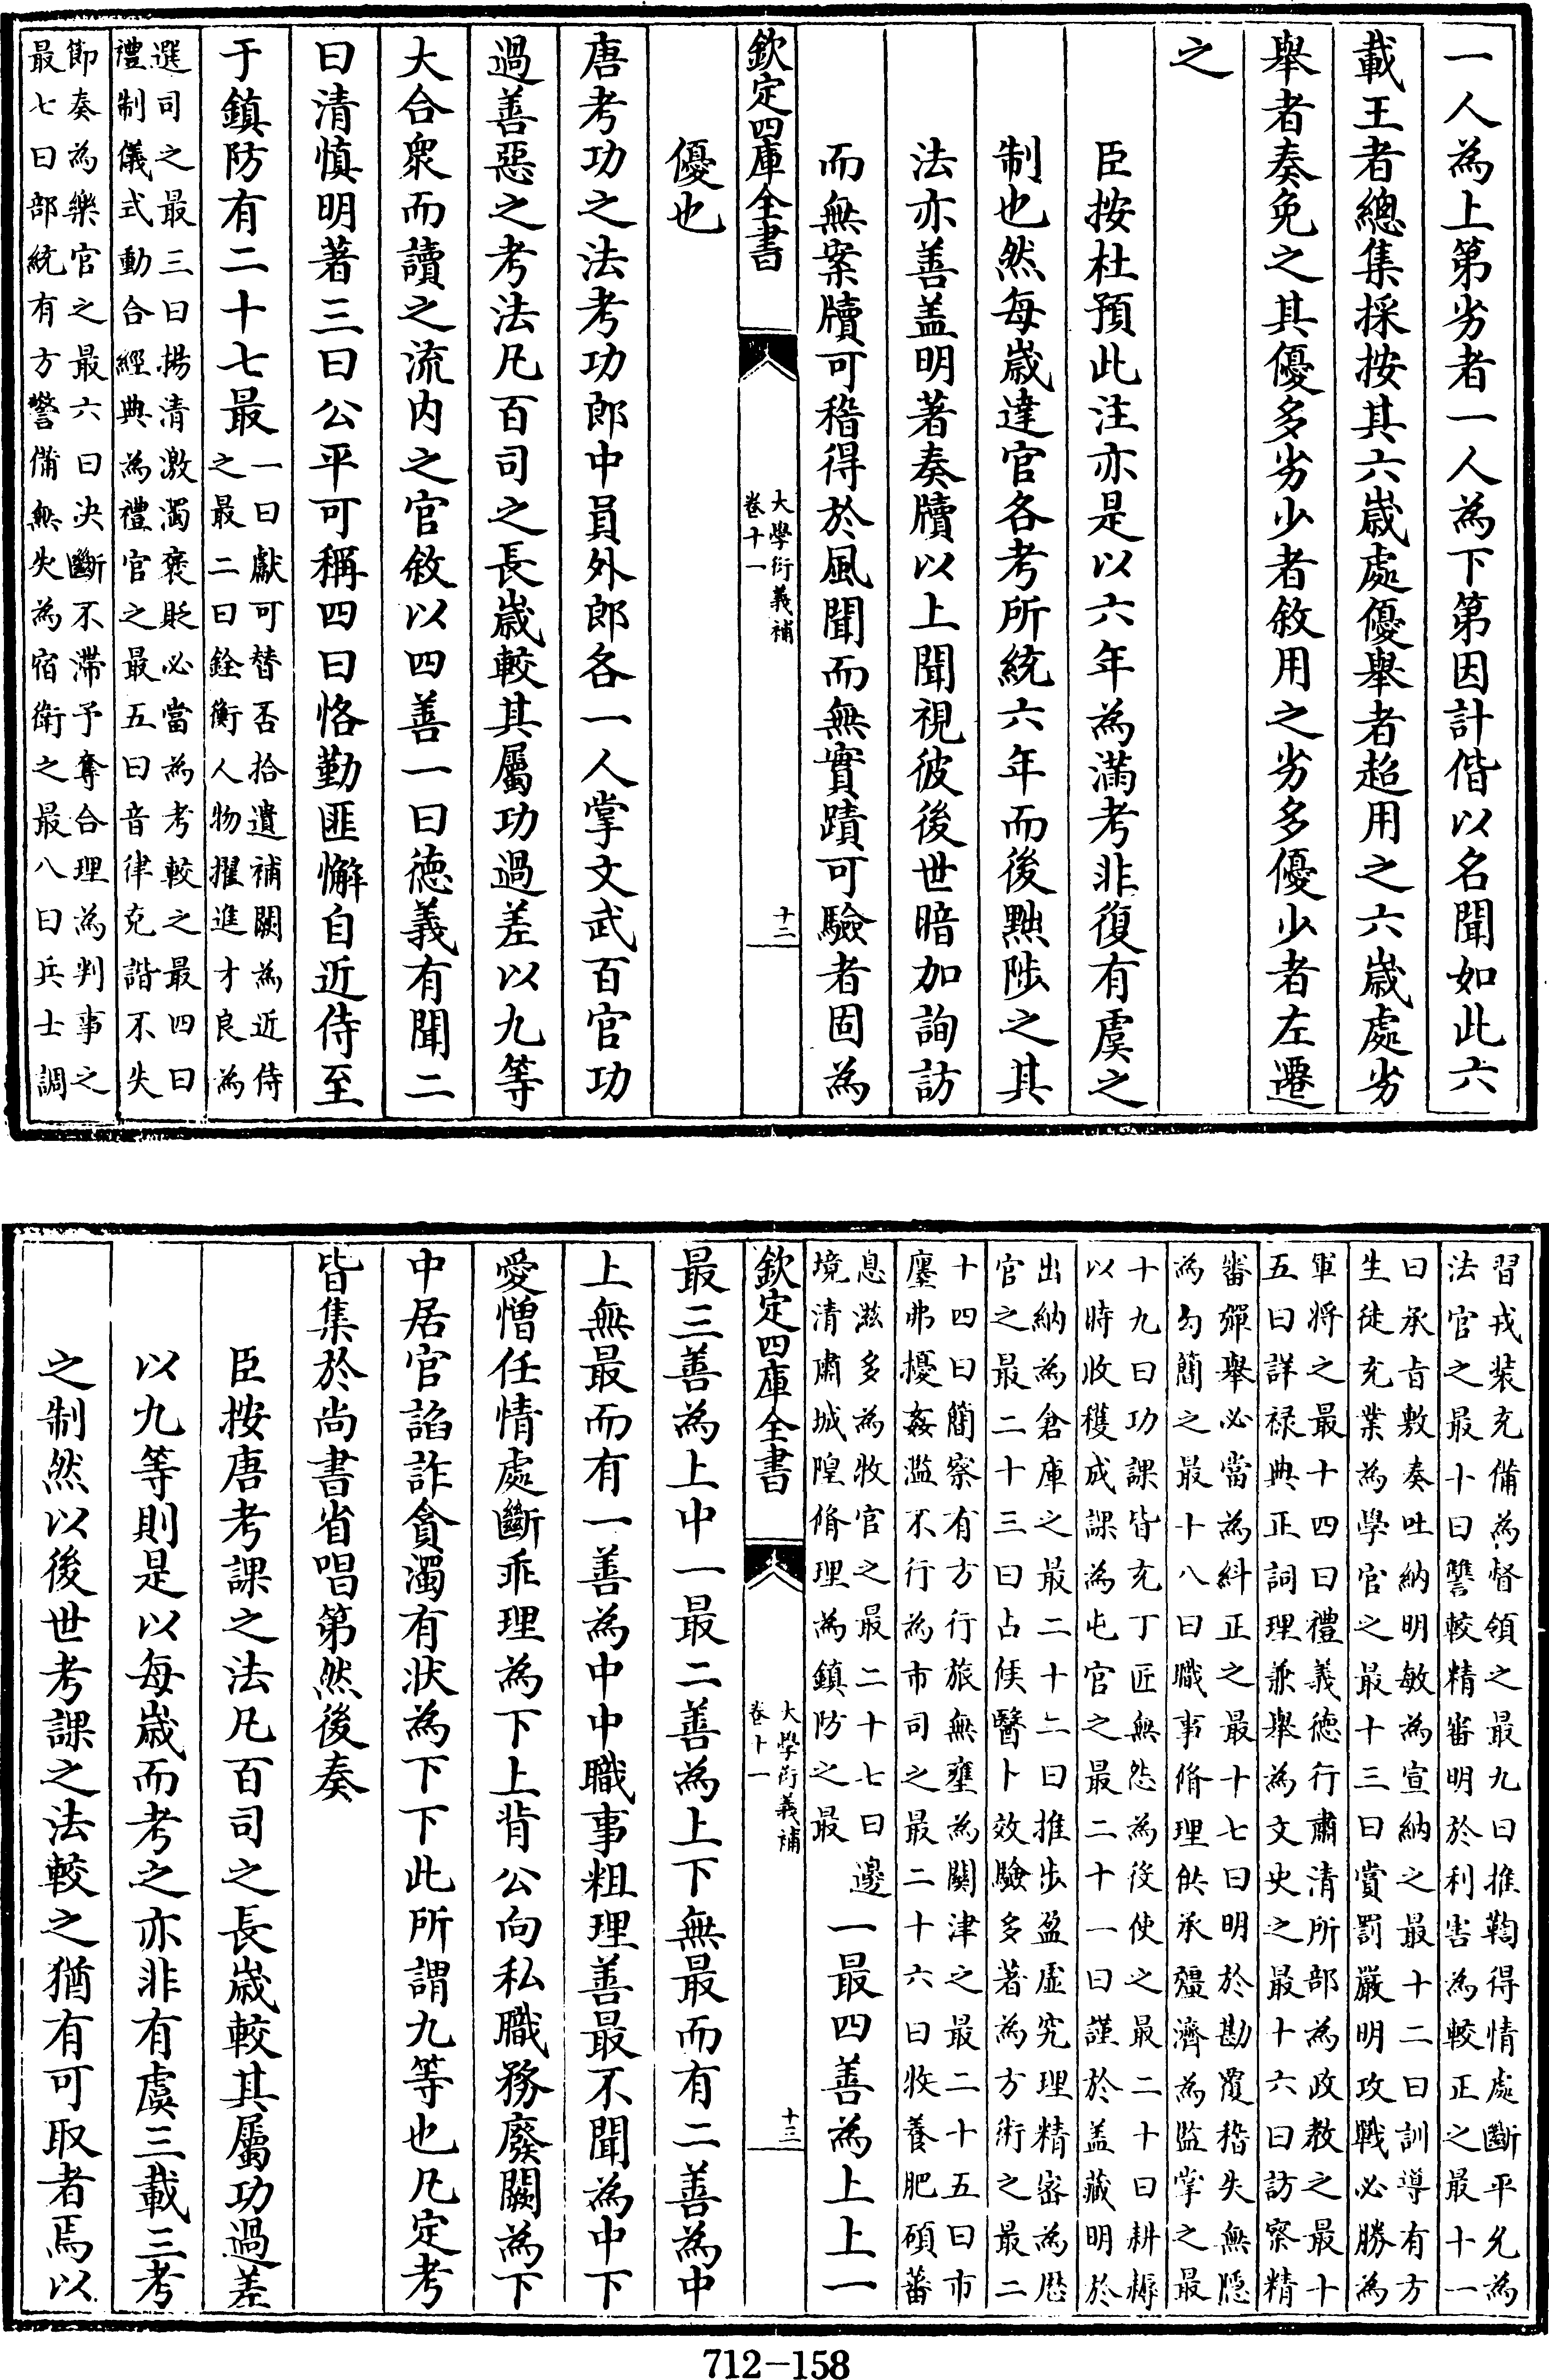 一人為上第劣者一人為下第因計偕以名聞如此六
載王者總集採按其六歲處優舉者超用之六歲處劣
舉者奏免之其優多劣少者敘用之劣多優少者左遷
之
臣按杜預此注亦是以六年為滿考非復有虞之
制也然每歲達官各考所統六年而後黜陟之其
法亦善盖明著奏牘以上聞視彼後世暗加詢訪
而無案牘可稽得於風聞而無實蹟可驗者固為
欽定四庫全書
大學衍義補
卷十一
十二
優也
唐考功之法考功郎中員外郎各一人掌文武百官功
過善惡之考法凡百司之長歲較其屬功過差以九等
大合衆而讀之流内之官敘以四善一曰徳義有聞二
曰清慎明著三曰公平可稱四曰恪勤匪懈自近侍至
于鎮防有二十七最
一曰獻可替否拾遺補闕為近侍
之最二曰銓衡人物擢進才良為
選司之最三曰揚清激濁褒貶必當為考較之最四曰
禮制儀式動合經典為禮官之最五曰音律克諧不失
節奏為樂官之最六曰决斷不滯予奪合理為判事之
最七曰部統有方警備無失為宿衛之最八曰兵士調
習戎装充備為督領之最九曰推鞫得情處斷平允為
法官之最十曰讐較精審明於利害為較正之最十一
曰承旨敷奏吐納明敏為宣納之最十二曰訓導有方
生徒充業為學官之最十三曰賞罰嚴明攻戰必勝為
軍將之最十四曰禮義徳行肅清所部為政教之最十
五曰詳禄典正詞理兼舉為文史之最十六曰訪察精
審彈舉必當為糾正之最十七曰明於勘覆稽失無隠
為勾簡之最十八曰職事脩理供承彊濟為監掌之最
十九曰功課皆充丁匠無怨為役使之最二十曰耕耨
以時收穫成課為屯官之最二十一曰謹於盖藏明於
出納為倉庫之最二十二曰推歩盈虚究理精宻為厯
官之最二十三曰占候醫卜效驗多著為方術之最二
十四曰簡察有方行旅無壅為關津之最二十五曰市
廛弗擾姦濫不行為市司之最二十六曰牧養肥碩蕃
息滋多為牧官之最二十七曰邊
境清肅城隍脩理為鎮防之最
一最四善為上上一
欽定四庫全書
大學衍義補
卷十一
十三
最三善為上中一最二善為上下無最而有二善為中
上無最而有一善為中中職事粗理善最不聞為中下
愛憎任情處斷乖理為下上背公向私職務廢闕為下
中居官諂詐貪濁有狀為下下此所謂九等也凡定考
皆集於尚書省唱第然後奏
臣按唐考課之法凡百司之長歲較其屬功過差
以九等則是以每歲而考之亦非有虞三載三考
之制然以後世考課之法較之猶有可取者焉以
712-158